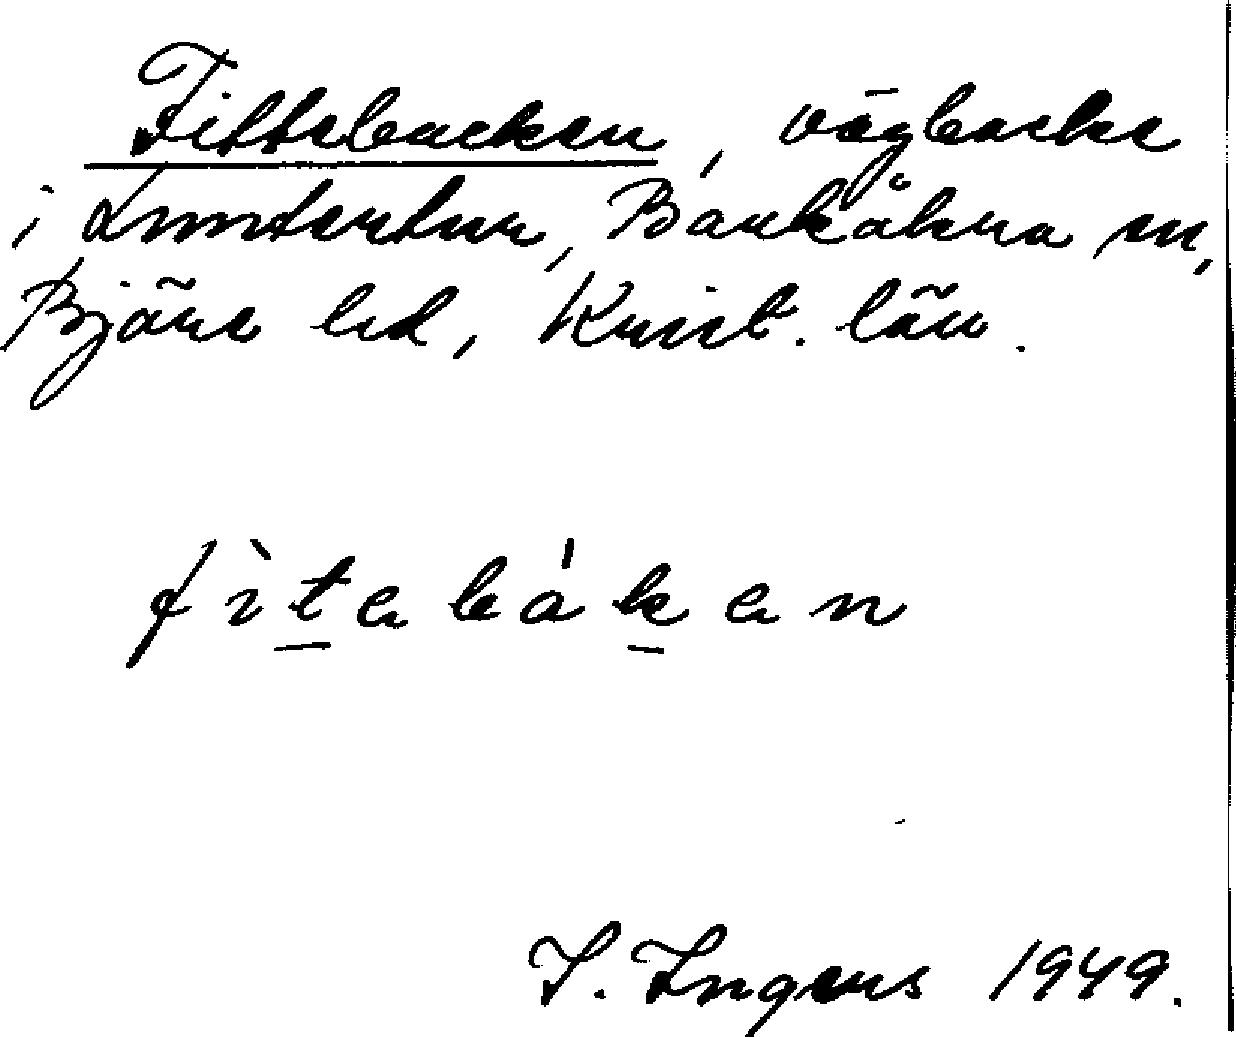 Fittebacken, vägbacke
i Luntertun, Barkåkra sn,
Bjäre hd, Krist. län.
fìtebáken
I. Ingers 1949.